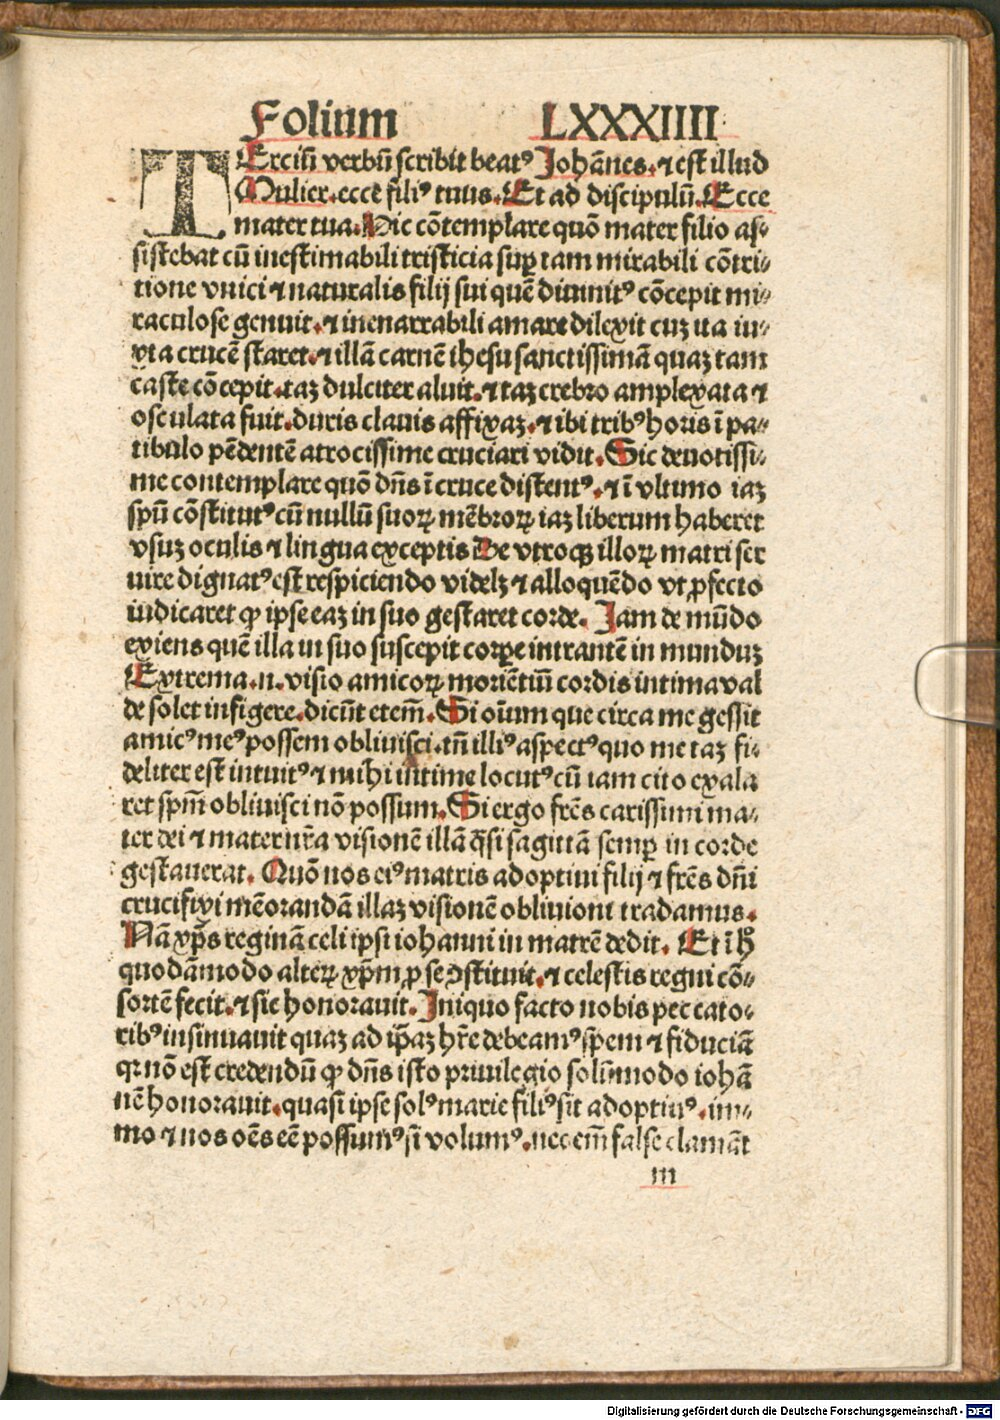 Folium LXXXIIII
TErciū verbū scribit beatꝰ Johānes. ⁊ est illud
Mulier. ecce filiꝰ tuus. Et ad discipulū. Ecce
mater tua. Hic cōtemplare quō mater filio as⸗
sistebat cū inestimabili tristicia suꝑ tam mirabili cōtri⸗
tione vnici ⁊ naturalis filij sui quē diuinitꝰ cōcepit mi⸗
raculose genuit. ⁊ inenarrabili amare dilexit cuz ita iu⸗
xta crucē staret. ⁊ illā carnē ihesu sanctissimā quaꝫ tam
caste cōcepit. taꝫ dulciter aluit. ⁊ taꝫ crebro amplexata ⁊
osculata fuit. duris clauis affixaꝫ. ⁊ ibi tribꝰ horis ī pa⸗
tibulo pēdentē atrocissime cruciari vidit. Sic deuotissi⸗
me contemplare quō dn̄s ī cruce distentꝰ. ⁊ ī vltimo iaꝫ
spū cōstitutꝰ cū nullū suoꝝ mēbroꝝ iaꝫ liberum haberet
vsuꝫ oculis ⁊ lingua exceptis De vtroqꝫ illoꝝ matri ser
uire dignatꝰ est respiciendo videlꝫ ⁊ alloquēdo vt ꝓfecto
iudicaret ꝙ ipse eaꝫ in suo gestaret corde. Jam de mūdo
exiens quē illa in suo suscepit corpe intrantē in munduꝫ
Extrema. n. visio amicoꝝ moriētiū cordis intima val
de solet infigere. dicūt etem̄. Si oīum que circa me gessit
amicꝰ meꝰ possem obliuisci. tn̄ illiꝰ aspectꝰ quo me taꝫ fi⸗
deliter est intuitꝰ ⁊ mihi intime locutꝰ cū iam cito exala
ret spm̄ obliuisci nō possum. Si ergo frēs carissimi ma⸗
ter dei ⁊ mater nr̄a visionē illā q̄si sagittā semꝑ in corde
gestauerat. Quō nos eiꝰ matris adoptiui filij ⁊ frēs dn̄i
crucifixi mēorandā illaꝫ visionē obliuioni tradamus.
Nā xp̄s reginā celi ipsi iohanni in matrē dedit. Et ī h̊
quodāmodo alteꝝ xp̄m ꝓ se ↄstituit. ⁊ celestis regni cō⸗
sortē fecit. ⁊ sic honorauit. Jn iquo facto nobis peccato⸗
ribꝰ insinuauit quaꝫ ad ip̄aꝫ hr̄e debeamꝰ spem ⁊ fiduciā
qꝛ nō est credendū ꝙ dn̄s isto priuilegio solūmodo iohā
nē honorauit. quasi ipse solꝰ marie filiꝰ sit adoptiuꝰ. im⸗
mo ⁊ nos oēs eē possumꝰ si volumꝰ. nec em̄ false clamāt
m
Digitalisierung gefördert durch die Deutsche Forschungsgemeinschaft - DFG